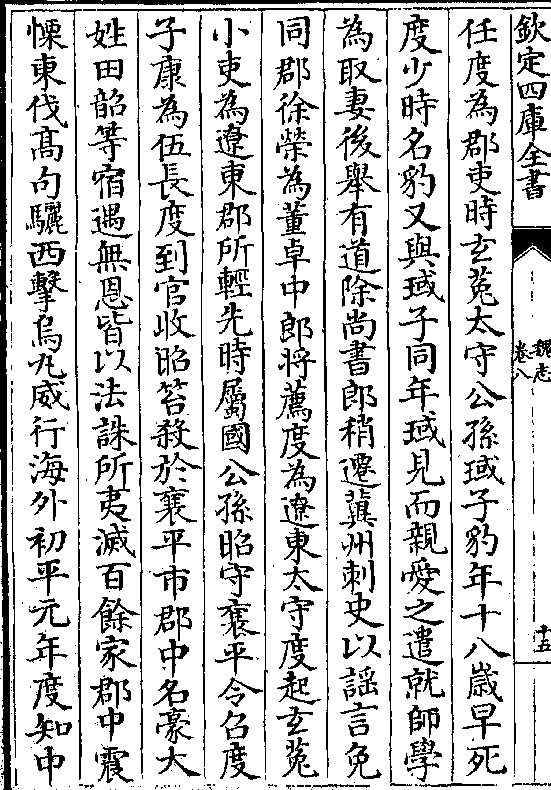 欽定四庫全書
魏志
卷八
十五
任度為郡吏時玄菟太守公孫琙子豹年十八歲早死
度少時名豹又與琙子同年琙見而親愛之遣就師學
為取妻後舉有道除尚書郎稍遷冀州刺史以謡言免
同郡徐榮為董卓中郎將薦度為遼東太守度起玄菟
小吏為遼東郡所輕先時屬國公孫昭守襄平令召度
子康為伍長度到官收昭笞殺於襄平市郡中名豪大
姓田韶等宿遇無恩皆以法誅所夷滅百餘家郡中震
慄東伐髙句驪西擊烏丸威行海外初平元年度知中